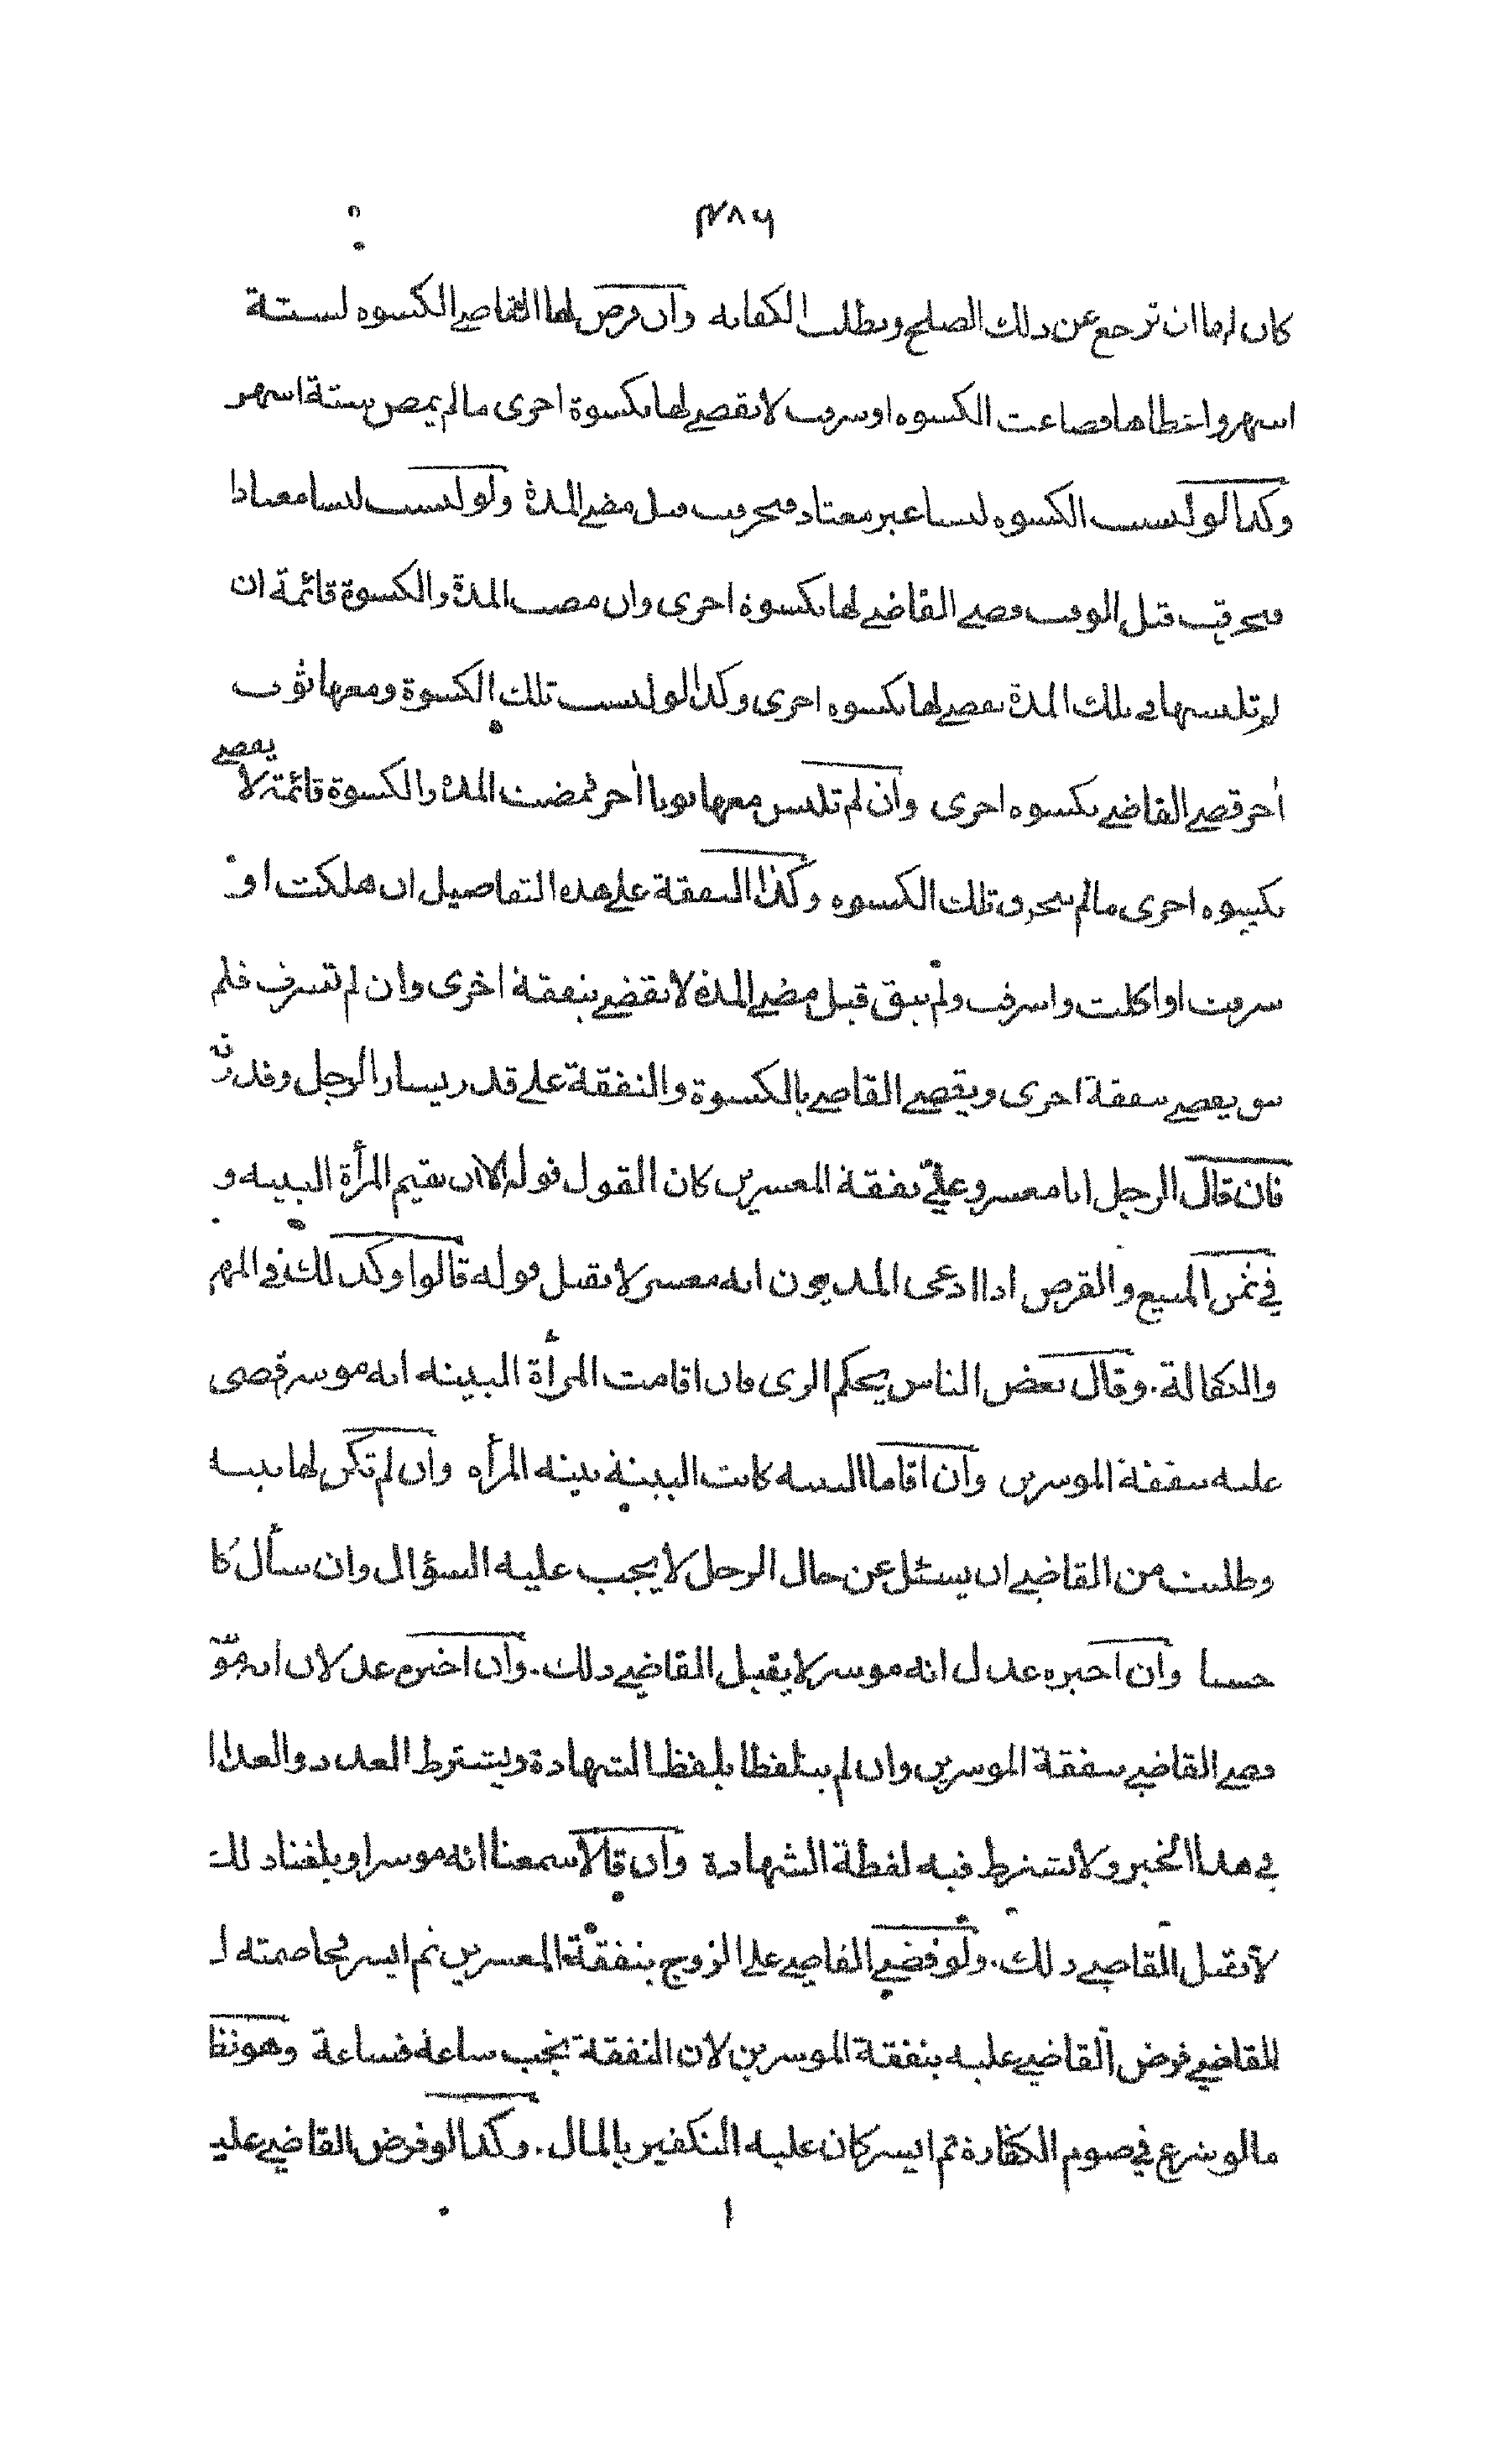 ٣٨٦
كان لها ان ترجع عن ذلك الصلح وتطلب الكفاية وان فرض لها القاضي الكسوه لستة
اشهر واعطاها فضاعت الكسوه او سرقت لا يقضي لها بكسوة اخرى ما لم يمض ستة اشهر
وكذا لو لبست الكسوه لبسا غير معتاد فتخرقت قبل مضي المدة ولو لبست لبسا معتادا
فتخرقت قبل الوقت قضي القاضي لها بكسوة اخرى وان مضت المدة والكسوة قائمة ان
لم تلبسها في تلك المدة يقضي لها بكسوه اخرى وكذا لو لبست تلك الكسوة ومعها ثوب
أخر قضي القاضي بكسوه اخرى وان لم تلبس معها ثوبا أخر فمضت المدة والكسوة قائمة لا يقضي
بكسوه اخرى ما لم يتخرق تلك الكسوه وكذا النفقة علي هذه التفاصيل ان هلكت او
سرقت او اكلت واسرفت ولم يبق قبل مضي المدة لا يقضي بنفقة اخرى وان لم تسرف فلم
يبق يقضي بنفقة اخرى ويقضي القاضي بالكسوة والنفقة علي قدر يسار الرجل وقدرته
فان قال الرجل انا معسر وعليّ نفقة المعسرين كان القول قوله الا ان تقيم المرأة البينه و
في ثمن المبيع والقرض اذا ادعى المديون انه معسر لا يقبل قوله قالوا وكذلك في المهر
والكفالة. وقال بعض الناس يحكم الزى فان اقامت المرأة البينه انه موسر قضى
عليه بنفقة الموسرين وان اقاما البينه كانت البينة بينه المرأه وان لم تكن لها بينه
وطلبت من القاضي ان يسئل عن حال الرجل لا يجب عليه السؤال وان سأل كا
حسنا وان اخبره عدل انه موسر لا يقبل القاضي ذلك. وان اخبره عدلان انه مو
قضي القاضي بنفقة الموسرين وان لم يتلفظا بلفظ الشهادة ويشترط العدد والعدا
في هذا الخبر ولا يشترط فيه لفظة الشهادة وان قالا سمعنا انه موسر او بلغنا ذلك
لا يقبل القاضي ذلك. ولو قضي القاضي علي الزوج بنفقة المعسرين ثم ايسر فخاصمته ا
للقاضي فرض القاضي عليه بنفقة الموسرين لان النفقة تجب ساعة فساعة وهو نظ
ما لو شرع في صوم الكفارة ثم ايسر كان عليه التكفير بالمال. وكذا لو فرض القاضي علي